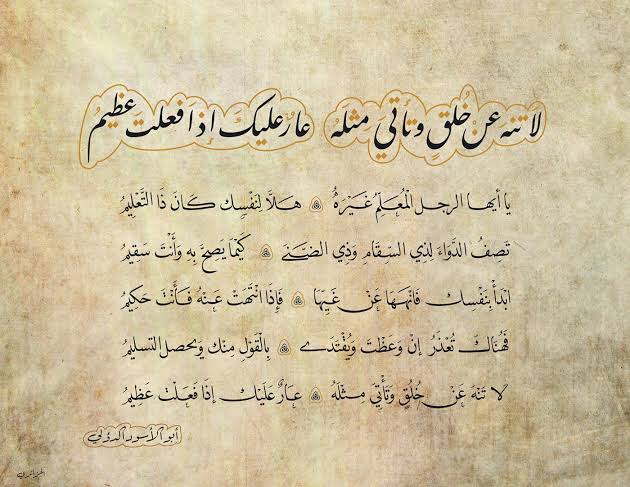 لا تنه عن خُلقٍ وتأتيَ مثلَه عارٌ عليكَ إذا فعلتَ عظيمُ
يا أيها الرجل المُعَلِّمُ غَيْرَهُ هَلاَّ لِنَفْسِكَ كَانَ ذَا التَّعْلِيمُ
تَصِفُ الدَّوَاءَ لِذِي السِّقَامِ وَذِي الضَّنَى كَيْمَا يَصِحَّ بِهِ وَأَنْتَ سَقِيمُ
ابْدَأْ بِنَفْسِكَ فَانْهَهَا عَنْ غَيِّهَا فَإِذَا انْتَهَتْ عَنْهُ فَأَنْتَ حَكِيمُ
فَهُنَاكَ تُعْذَرُ إِنْ وَعَظْتَ وَيُقْتَدَى بِالْقَوْلِ مِنْكَ وَيَحْصُلُ التسليمُ
لا تَنْهَ عَنْ خُلُقٍ وَتَأْتِيَ مِثْلَهُ عَارٌ عَلَيْكَ إِذَا فَعَلْتَ عَظِيمُ
أبو الأسود الدؤلي